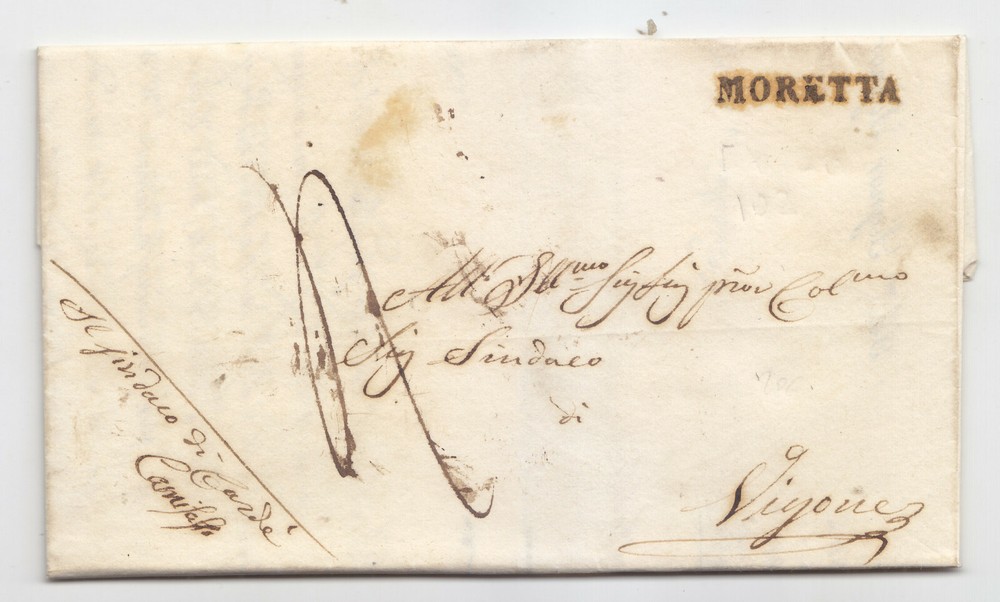 MORETTA
All' Ill.mo Sig Sig pr̃on Col.mo
Sig Sindaco
di
Vigone
Il Sindaco di Cardè